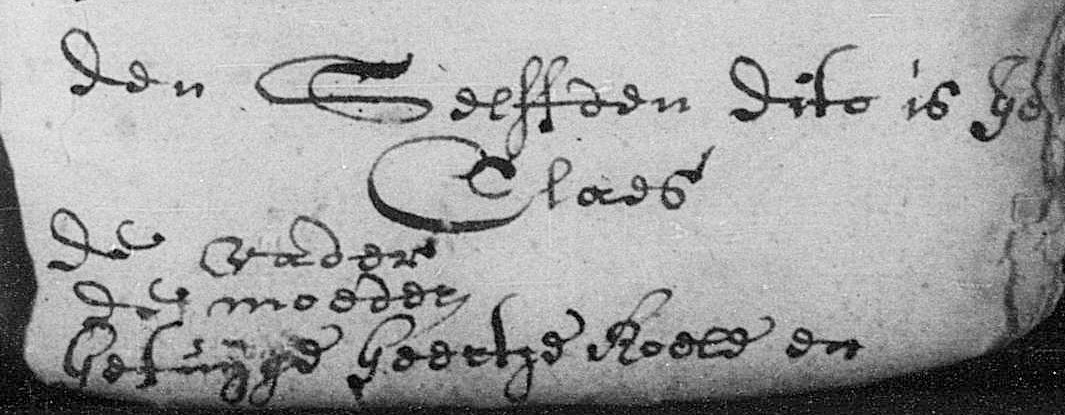 den Selffden dito is ge
Claes
de vader
de moeder
getuÿge geertze Roele en